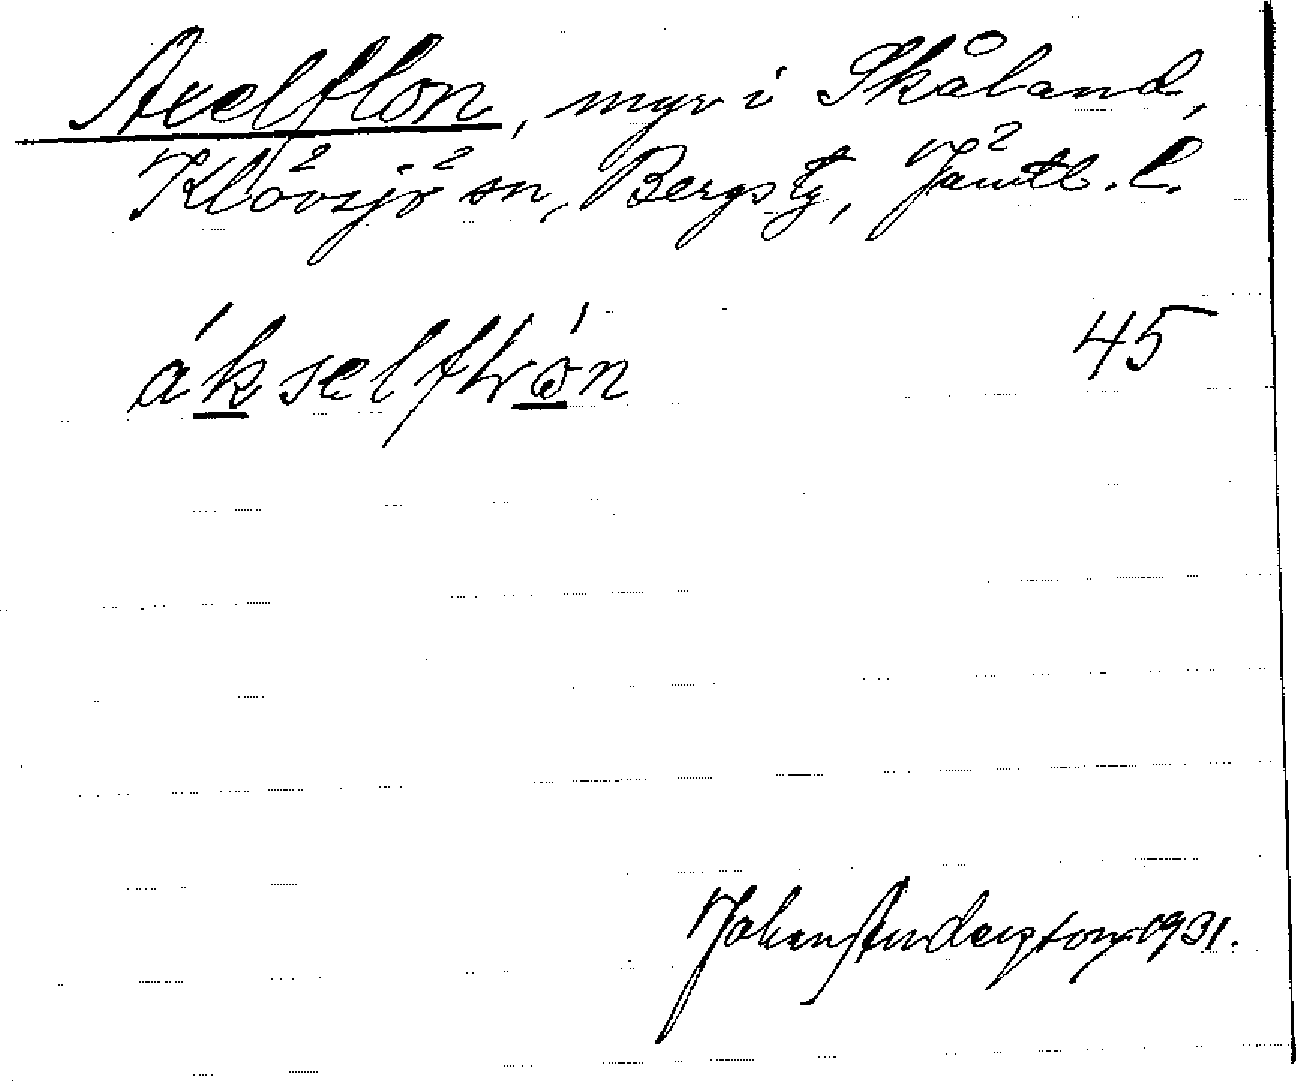 Axelflon, myr i Skåland,
Klövsjö sn, Bergs tg, Jämtl. l.
ákselflón 45
Johan Anderson 1931.